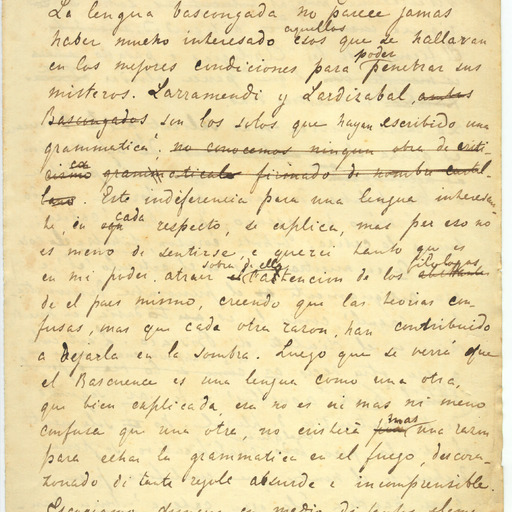 La lengua bascongada no parece jamas
haber mucho interesado aquellos esos que se hallavan
en las mejores condiciones para poder penetrar sus
misteros. Larramendi y Lardizabal, ambos
Bascongados son los solos que hayan escribido una
grammatica; no conocemos ninguna obra de criti
cismo grammaticale firmado de nombre castel-
lano. Esta indiferencia para una lengua interesan-
te, en cada respecto, se explica, mas por eso no
es meno de sentirse, e querei tanto que es
en mi poder, atraer sobra d'ella la attencion de los filologos
de el pais mismo, creendo que las teorias con-
fusas, mas que cada otra razon, han contribuido
a dejarla en la sombra. Luego que se verrá que
el Bascuence es una lengua como una otra,
que bien explicada, era no es ni mas ni meno
confusa que una otra, no existerá mas una razon
para echar la grammatica en el fuego, descora-
zonado di tanta regole absurde e incomprensible.